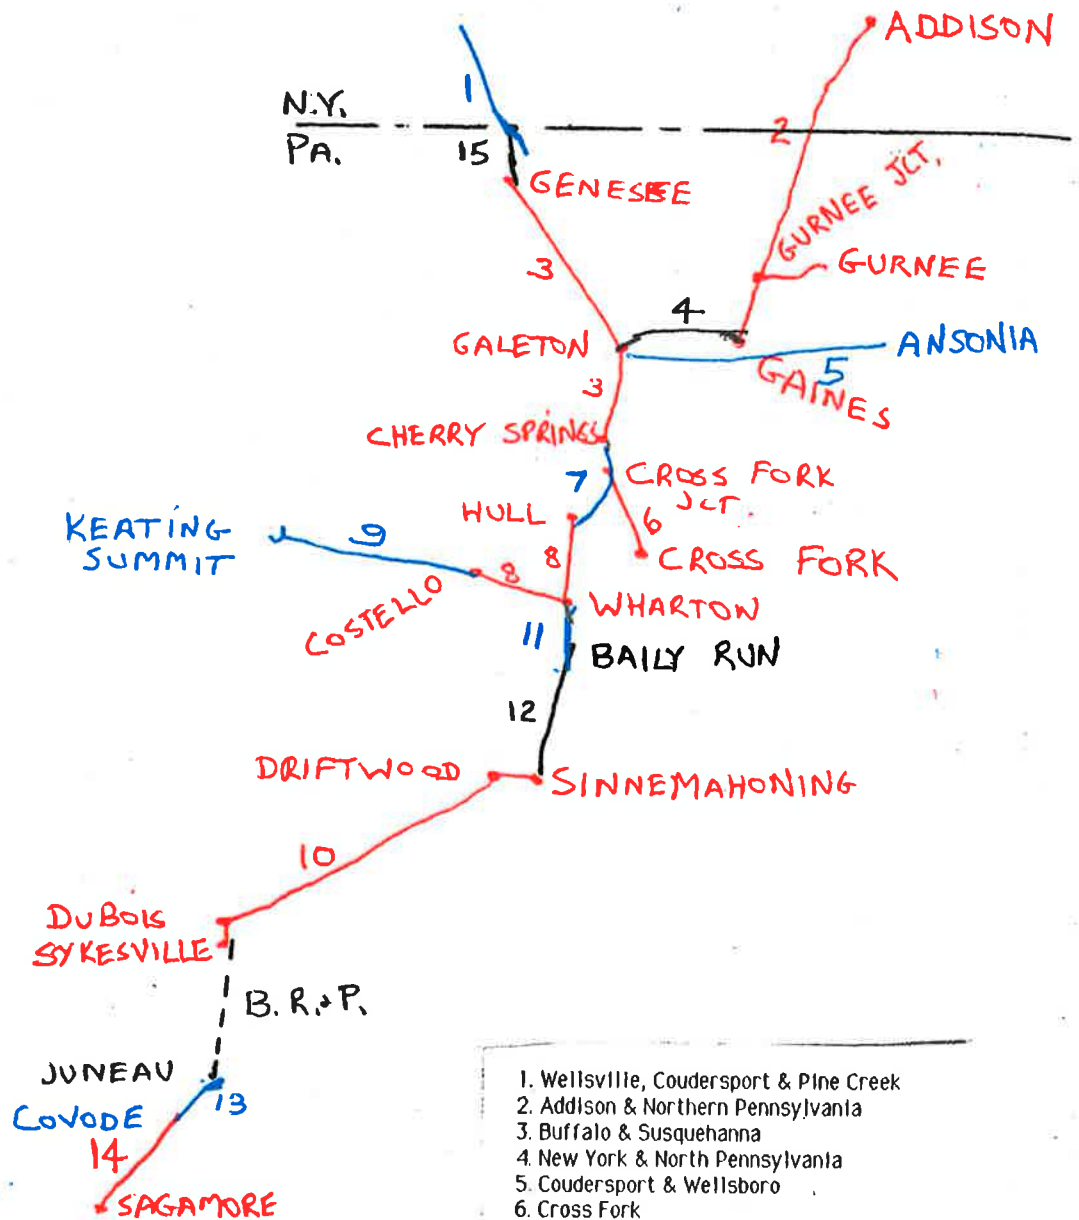 ADDISON
1
N.Y.
2
PA.
15
GENESEE
GURNEE JCT.
3
GURNEE
4
GALETON
ANSONIA
5
GAINES
3
CHERRY SPRINGS
7
CROSS FORK
JCT.
HULL
6
KEATING
SUMMIT
9
8
CROSS FORK
8
COSTELLO
WHARTON
11
BAILY RUN
12
DRIFTWOOD
SINNEMAHONING
10
DUBOIS
SYKESVILLE
B. R. & P.
JUNEAU
13
COVODE
14
SAGAMORE
1. Wellsville, Coudersport & Pine Creek
2. Addison & Northern Pennsylvania
3. Buffalo & Susquehanna
4. New York & North Pennsylvania
5. Coudersport & Wellsboro
6. Cross Fork